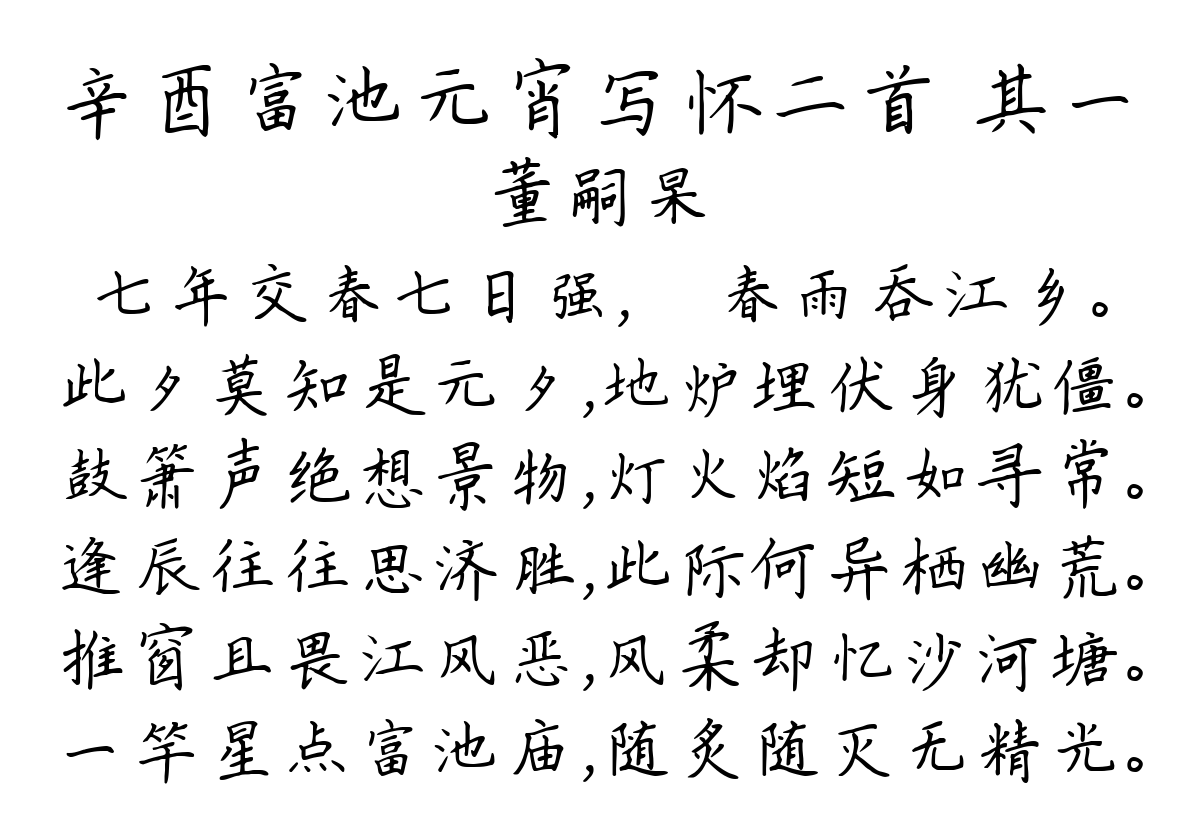 辛酉富池元宵写怀二首 其一
董嗣杲
七年交春七日强， 春雨吞江乡。
此夕莫知是元夕,地炉埋伏身犹僵。
鼓箫声绝想景物,灯火焰短如寻常。
逢辰往往思济胜,此际何异栖幽荒。
推窗且畏江风恶,风柔却忆沙河塘。
一竿星点富池庙,随炙随灭无精光。